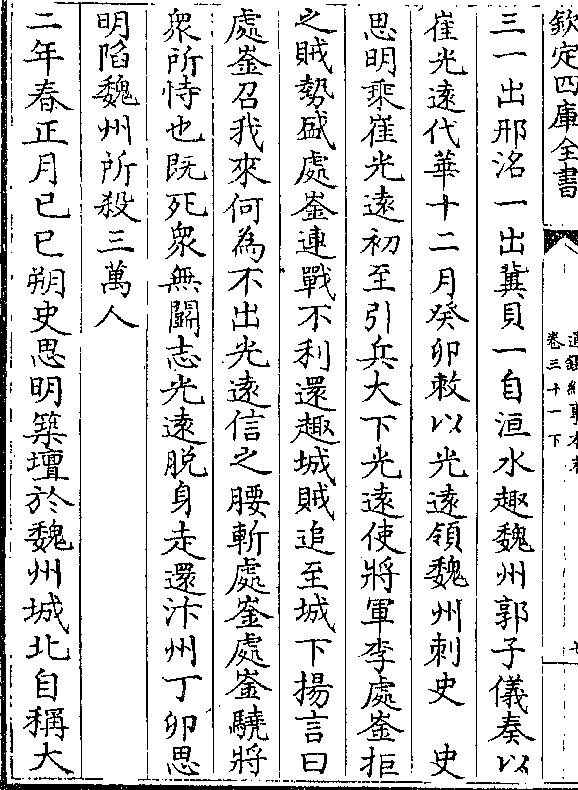 欽定四庫全書
通鑑紀事本末
卷三十一下
七
三一出邢洺一出冀貝一自洹水趣魏州郭子儀奏以
崔光遠代華十二月癸卯敕以光遠領魏州刺史 史
思明乘崔光遠初至引兵大下光遠使將軍李處崟拒
之賊勢盛處崟連戰不利還趣城賊追至城下揚言曰
處崟召我來何為不出光遠信之腰斬處崟處崟驍將
衆所恃也既死衆無鬭志光遠脫身走還汴州丁卯思
明陷魏州所殺三萬人
二年春正月已巳朔史思明築壇於魏州城北自稱大